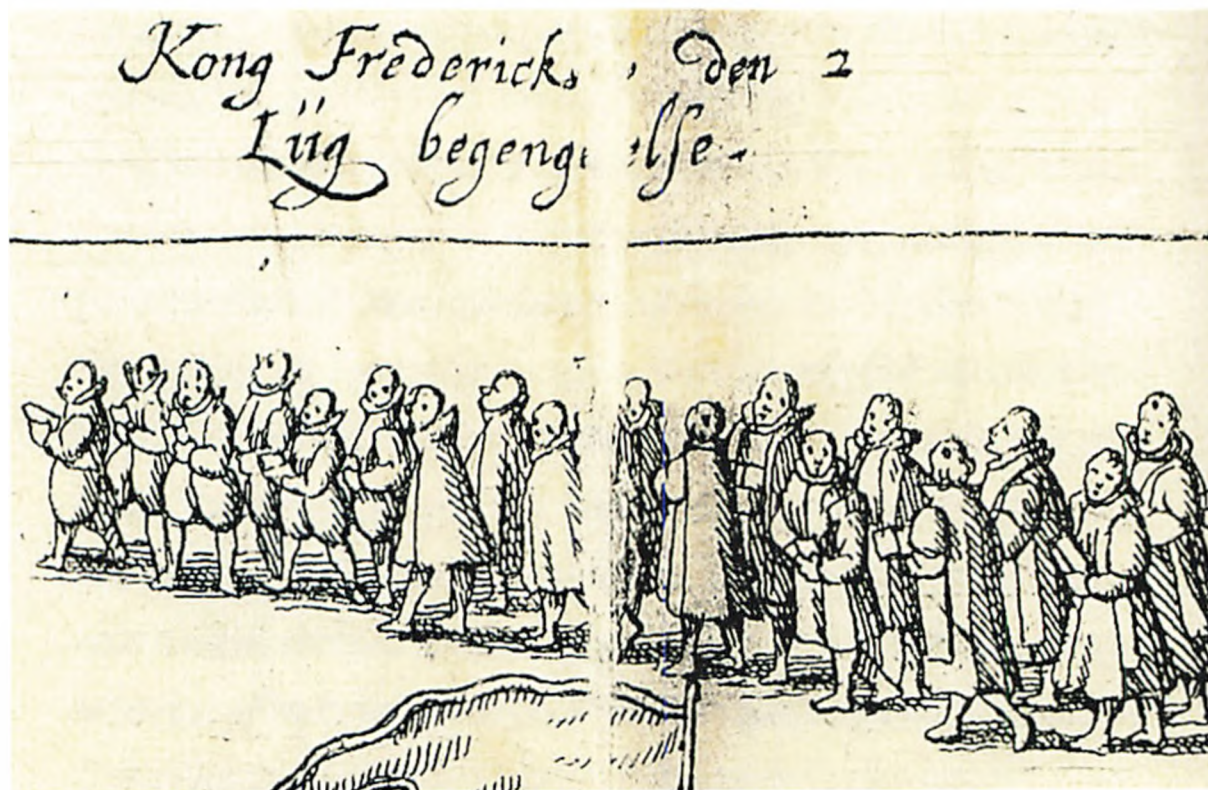 Kong Fredericks den 2
Liig begengelse.